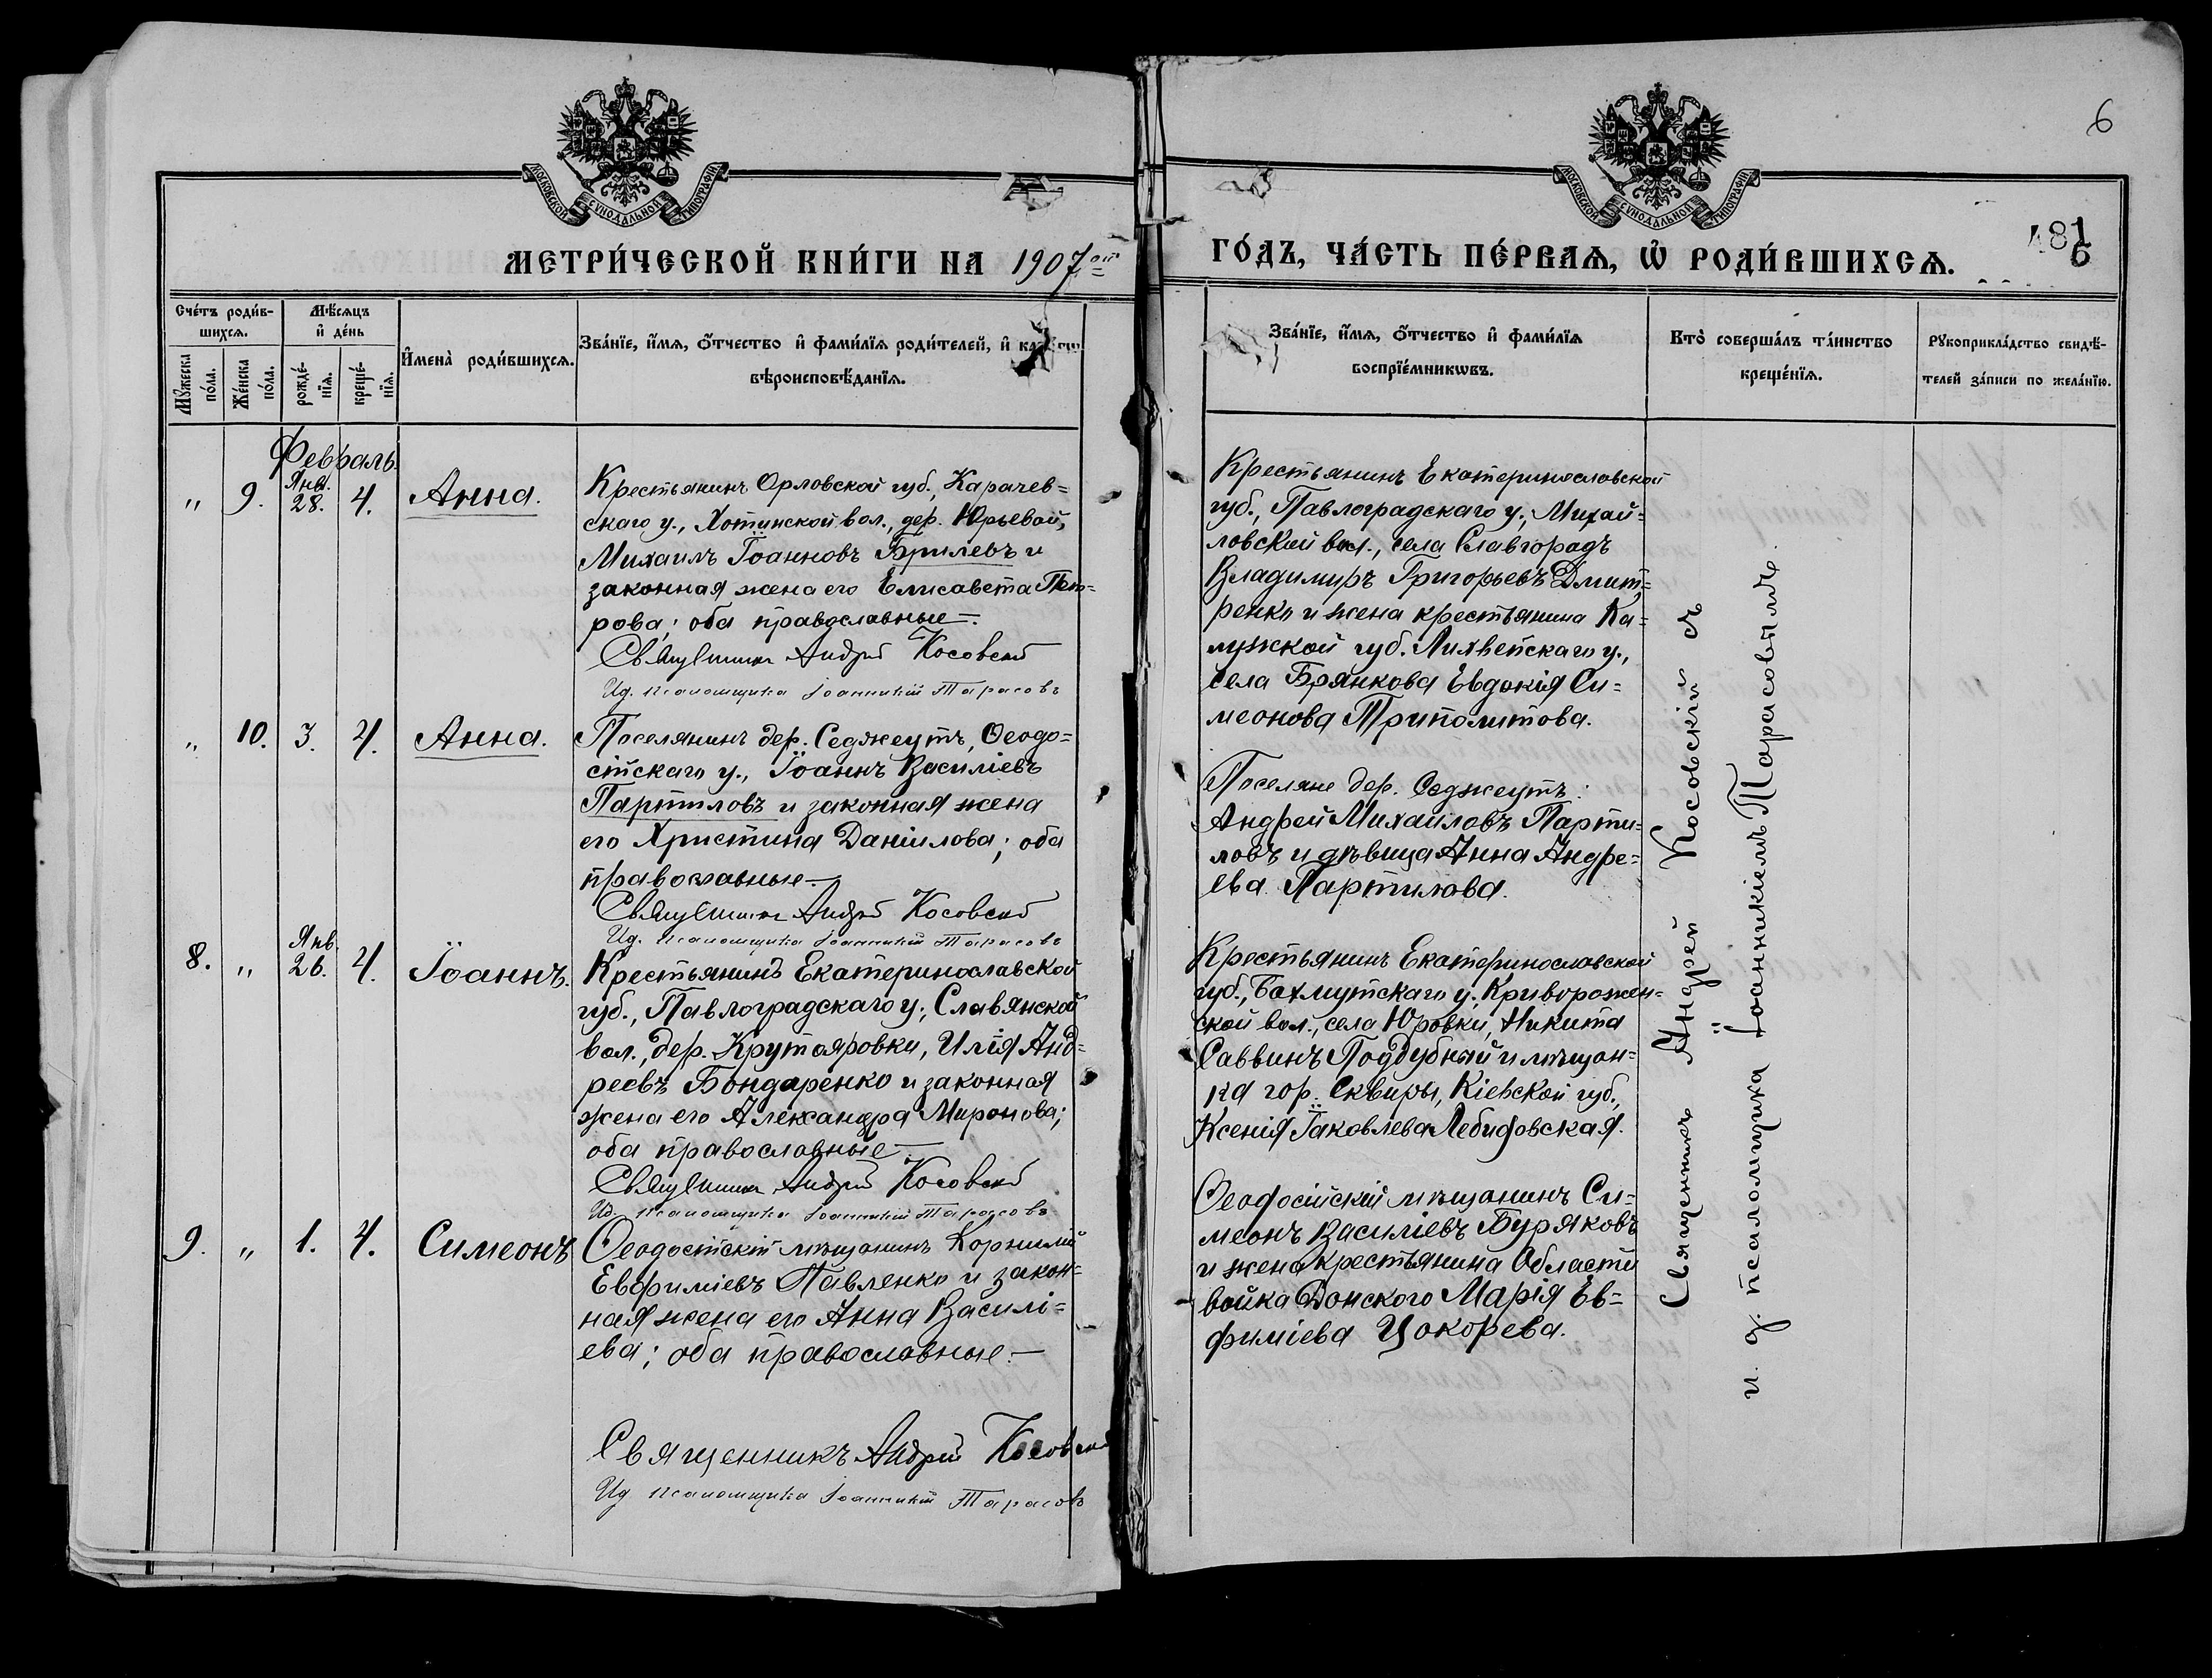 6
МОСКОВСКОЙ СѴНОДАЛЬНОЙ ТИПОГРАФІИ
МОСКОВСКОЙ СѴНОДАЛЬНОЙ ТИПОГРАФІИ
МЕТРИ́ЧЕСКОЙ КНИ́ГИ НА 1907ой ГО́ДЪ, ЧА́СТЬ ПЕ́РВАѦ, Ѡ҆ РОДИ́ВШИХСѦ.
481
6
Сче́тъ роди́в-
шихсѧ.
Мѣ́сѧцъ
и҆ де́нь
Мꙋ́жеска по́ла.
Же́нска по́ла.
рожде́-
нїѧ.
креще́-
нїѧ.
И҆мена̀ роди́вшихсѧ.
Зва́нїе, и҆́мѧ, ѻ҆́тчество и҆ фами́лїѧ роди́телей, и҆
вѣроисповѣ́данїѧ.
Зва́нїе, и҆́мѧ, ѻ҆́тчество и҆ фами́лїѧ
воспрїе́мникѡвъ.
Кто̀ соверша́лъ та́инство
креще́нїѧ.
Рꙋкоприкла́дство свидѣ́-
телей за́писи по жела́нїю.
Февраль.
„ 9. Янв. 28. 4. Анна.
Крестьянинъ Орловской губ., Карачев=
скаго у., Хотинской вол., дер. Юрьевой,
Михаилъ Іоанновъ Брилевъ и
законная жена его Елисавета Пет-
рова; оба православные.—
Священникъ Андрей Косовскій
И.д. псаломщика Іоанникій Тарасовъ
Крестьянинъ Екатеринославской
губ., Павлоградскаго у., Михай=
ловской вол., села Славгородъ
Владимиръ Григорьевъ Дмит=
ренко и жена крестьянина Ка=
лужской губ. Лихвенскаго у.,
села Брянкова Евдокія Си=
меонова Триполитова.
„ 10. 3. 4. Анна.
Поселянинъ дер. Седжеутъ, Ѳеодо=
сійскаго у., Іоаннъ Василіевъ
Партиловъ и законная жена
его Христина Даніилова; оба
православные.—
Священникъ Андрей Косовскій
И.д. псаломщика Іоанникій Тарасовъ
Поселяне дер. Седжеутъ:
Андрей Михаиловъ Парти=
ловъ и дѣвица Анна Андре=
ева Партилова.
8. „ Янв. 26. 4. Іоаннъ.
Крестьянинъ Екатеринославской
губ., Павлоградскаго у., Славянской
вол., дер. Крутояровки, Илія Анд=
реевъ Бондаренко и законная
жена его Александра Миронова;
оба православные.—
Священникъ Андрей Косовскій
И.д. псаломщика Іоанникій Тарасовъ
Крестьянинъ Екатеринославской
губ., Бахмутскаго у., Криворожен=
ской вол., села Юровки, Никита
Саввинъ Поддубный и мѣщан=
ка гор. Сквиры, Кіевской губ.,
Ксенія Іаковлева
9. „ 1. 4. Симеонъ
Ѳеодосійскій мѣщанинъ Корнилій
Евфиміевъ Павленко и закон=
ная жена его Анна Василі=
ева; оба православные.—
Священникъ Андрей Косовскій
И.д. псаломщика Іоанникій Тарасовъ
Ѳеодосійскій мѣщанинъ Си=
меонъ Василіевъ Буряковъ
и жена крестьянина Области
войка Донского Марія Ев=
фиміева Цокорева.
Священникъ Андрей Косовскій съ
и. д. псаломщика Іоанникіемъ Тарасовымъ.